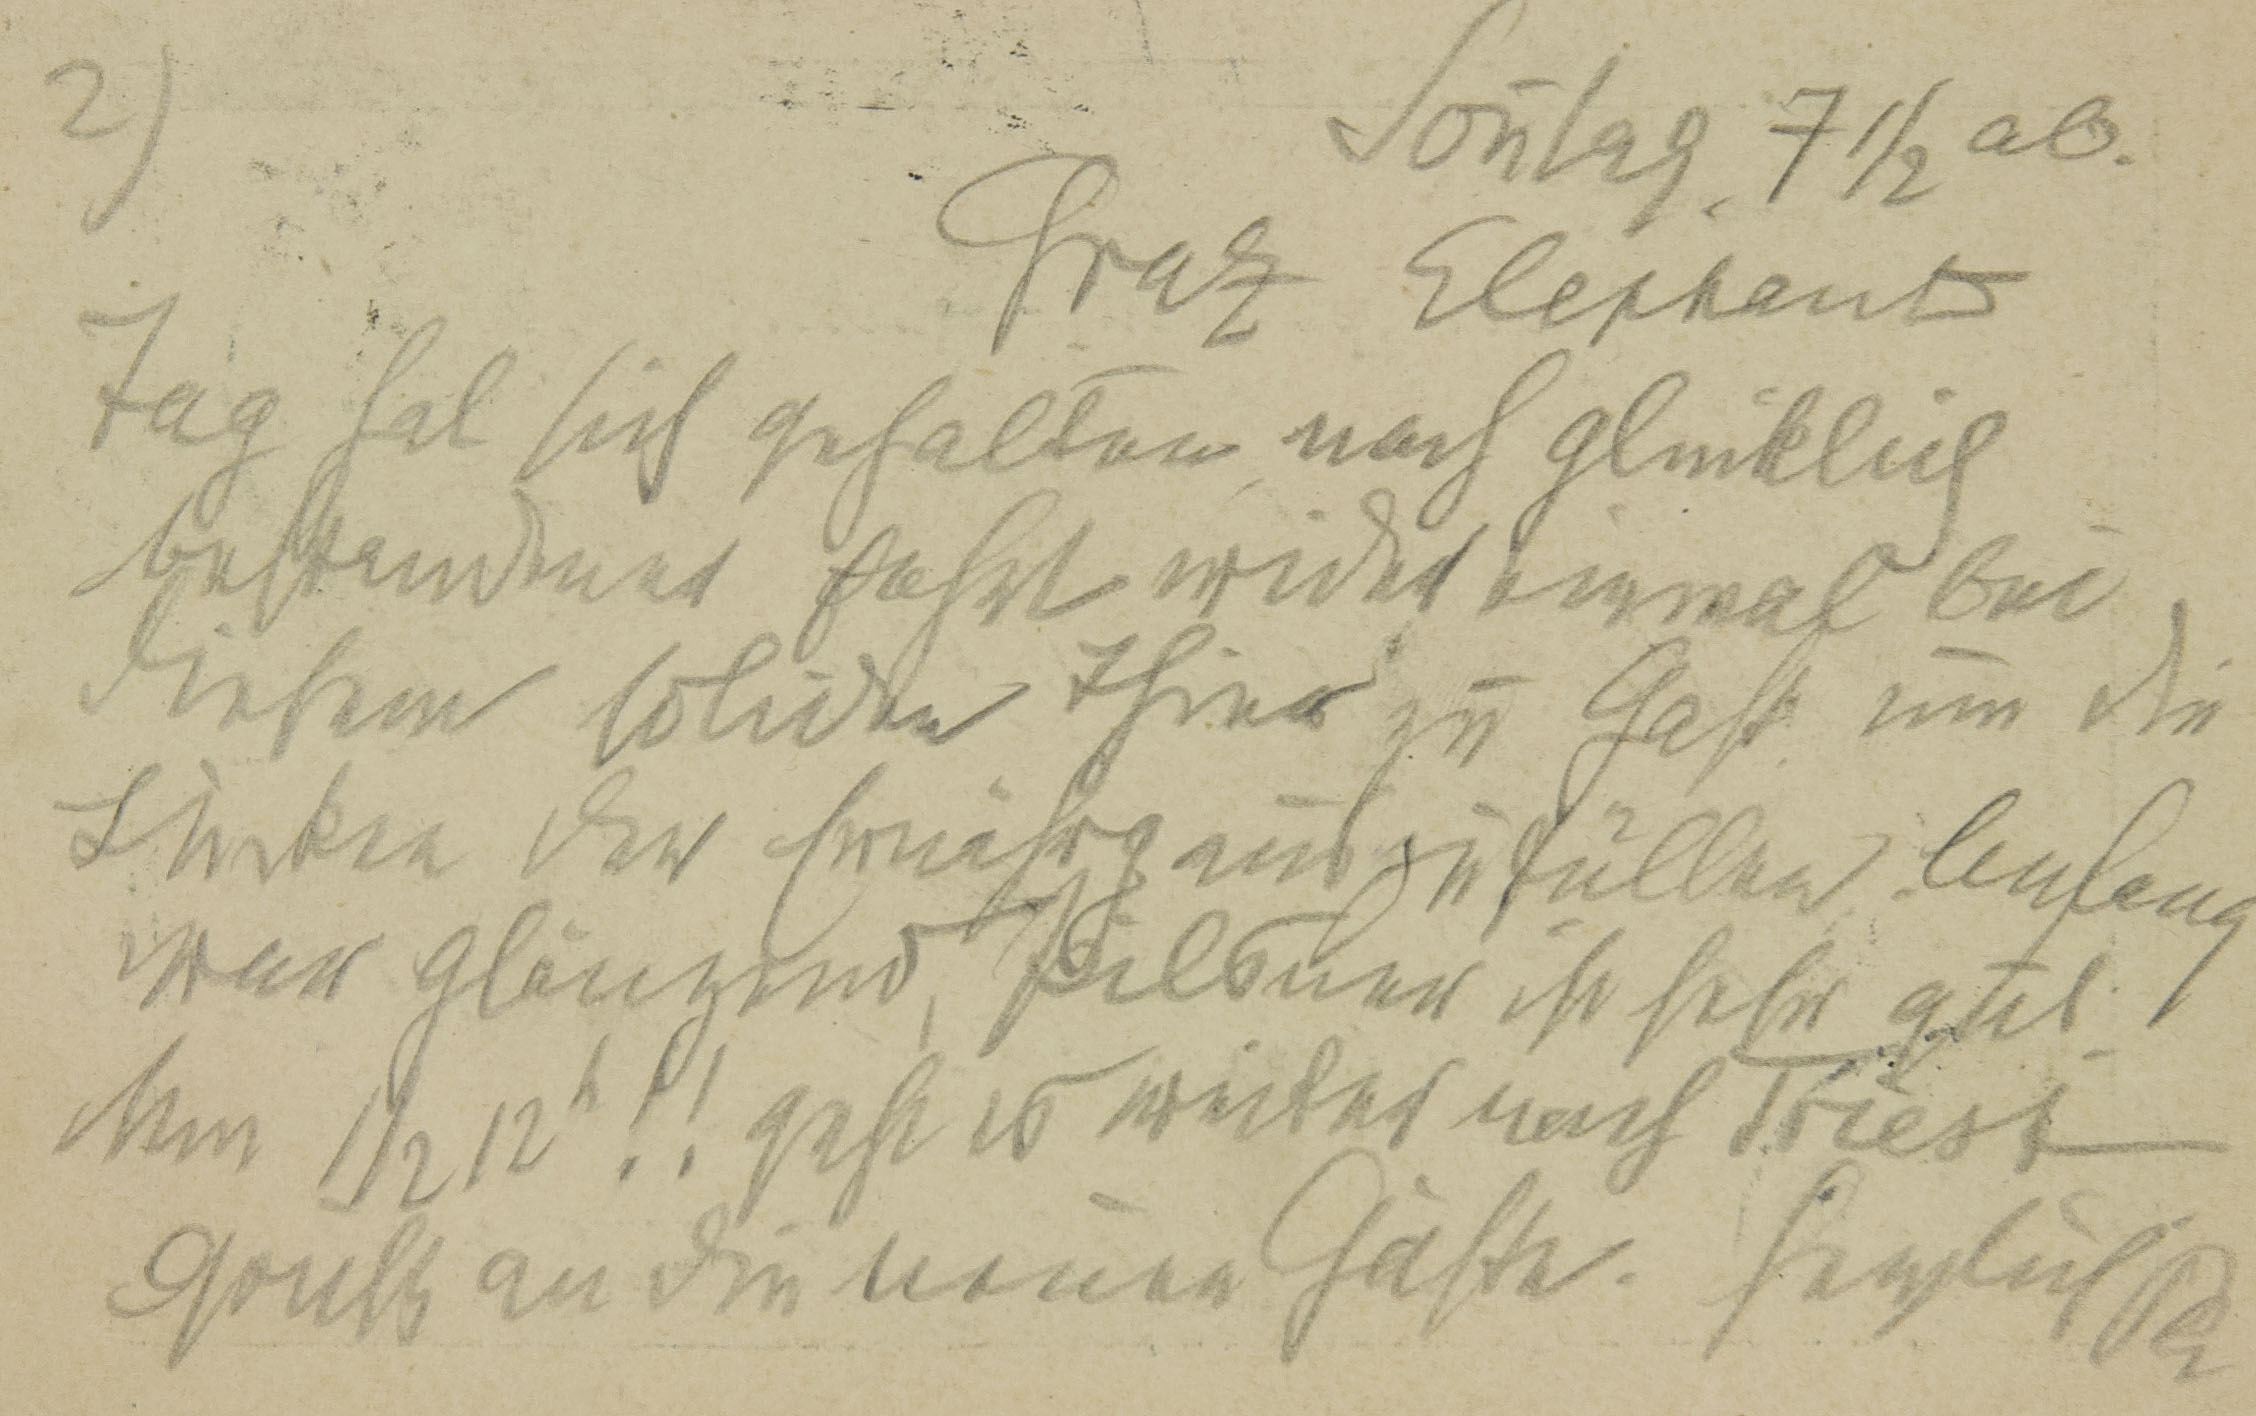 2)
Sontag, 7 1/2 ab.
Graz Elephant
Tag hat sich gehalten, nach glücklich
bestandener Fahrt wider einmal bei
diesem soliden Thier zu Gast um die
Lücken der Ernährg auszufüllen. Anfang
war glänzend, Pilsner ist sehr gut.
Um 1/2 12h!! geht es weiter nach Triest
Gruß an die neuen Gäste. Herzlich